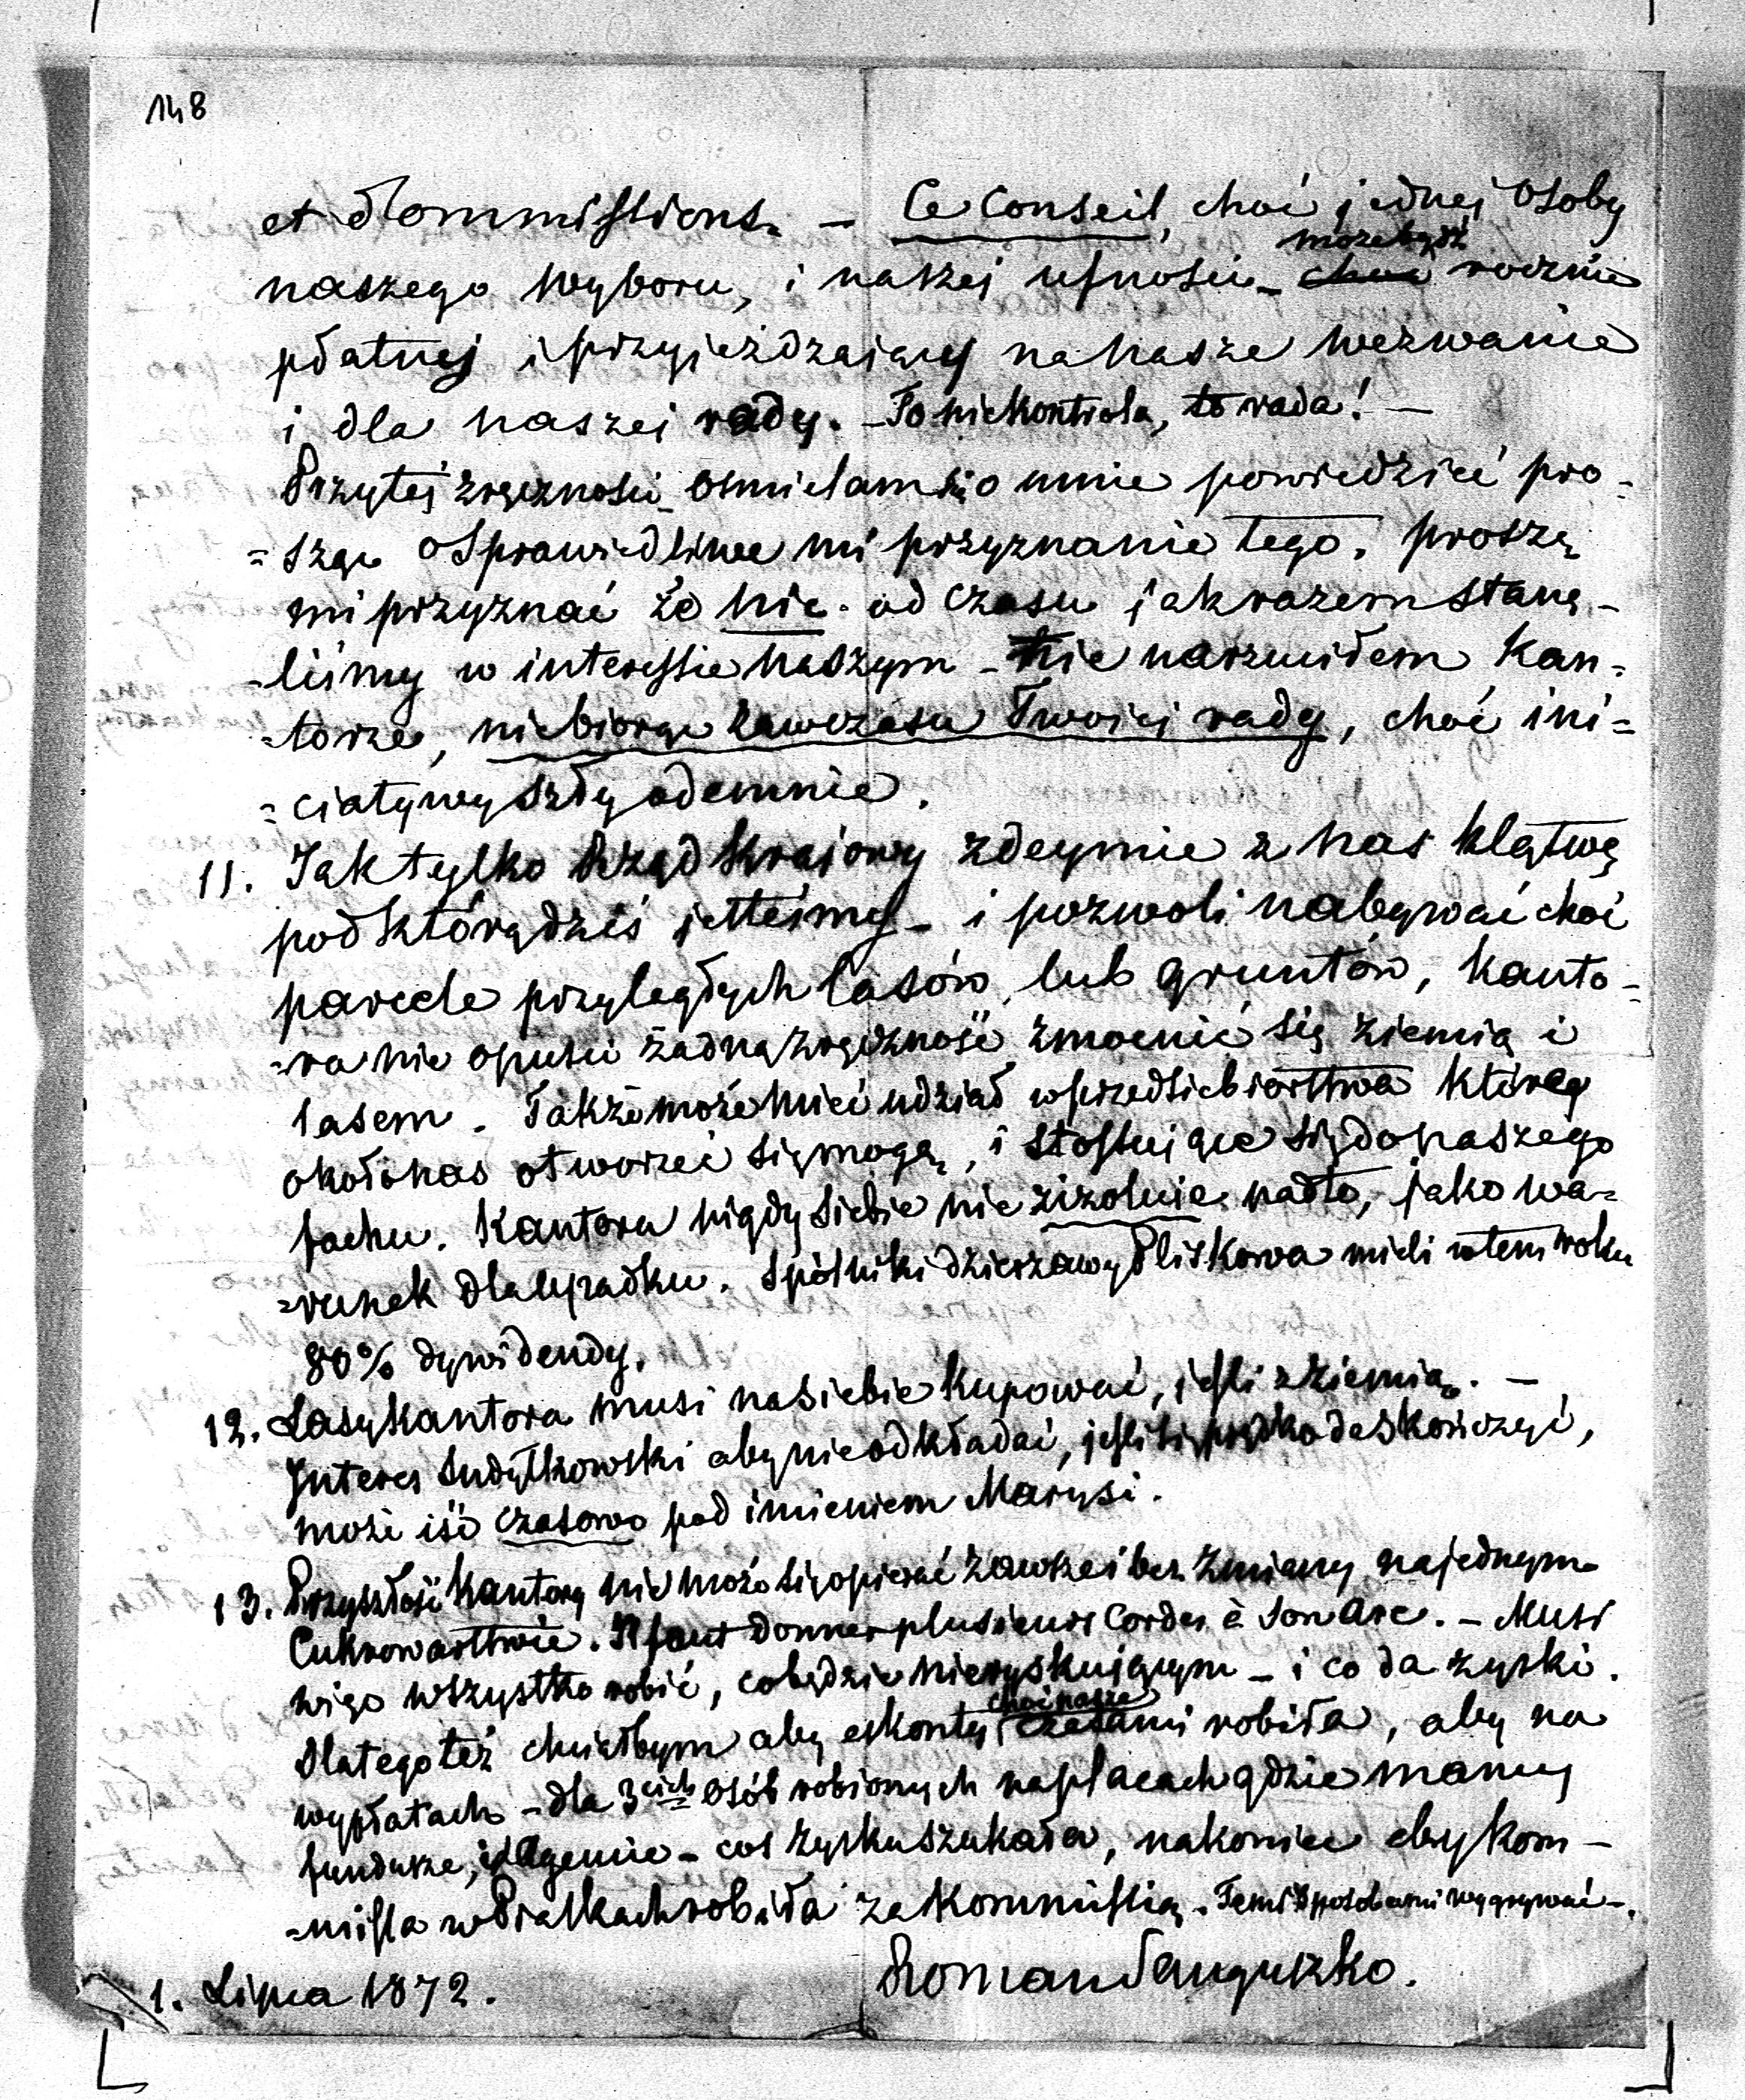 148
et Commissions. — Ce Conseil, choć jednej osoby
może być
naszego wyboru, i naszej ufności – choć rocznie
płatnej i przyjeżdzającej na nasze wezwanie
i dla naszej rady. – To nie kontrola, to rada! —
Przy tej zręczności ośmielam się o mnie powiedzieć pro-
=szę o sprawiedliwe mi przyznanie tego, proszę
mi przyznać że nic od czasu jak razem stanę-
-liśmy w interessie naszym – nie narzuciłem Kan=
-torze, nie biorąc zawczasu Twojej rady, choć ini=
=ciatywy szły odemnie.
11. Jak tylko Rząd Krajowy zdeymie z nas klątwę
pod którą dziś jesteśmy – i pozwoli nabywać choć
parcele przyległych lasów, lub gruntów, kanto-
-ra nie opuści żadną zręczność zmocnić się ziemią i
lasem. Także może mieć udział w przedsiebiorstwa które
około nas otworzeć się mogą, i stossujące się do naszego
fachu. Kantora nigdy siebie nie zizoluie nadto, jako wa=
=runek dla upadku. Spólniki dzierżawy Pliskowa mieli w tem roku
80% dywidendy.
12. Lasy kantora musi na siebie kupować, jeśli z ziemią. —
Interes Sudyłkowski aby nie odkładać, jeśli się prędko da skończyć,
może iść czasowo pod imieniem Marysi.
13. Przyszłość Kantory nie może się opierać zawsze i bez zmiany na jednym
Cukrowarstwie. Il faut donner plusieurs Cordes à son Arc. – Musi
więc wszystko robić, co będzie nieryskującym – i co da zyski.
choć nasze
Dlatego też chciałbym aby eskonty czasami robiła, aby na
wypłatach – dla 3cich osób robionych na placach gdzie mamy
fundusze, i Agencie – coś zysku szukała, nakoniec aby kom-
-missa w Białkach robiła za kommissią. Temi sposobami wygrywać –.
1. Lipca 1872.
Roman Sanguszko.